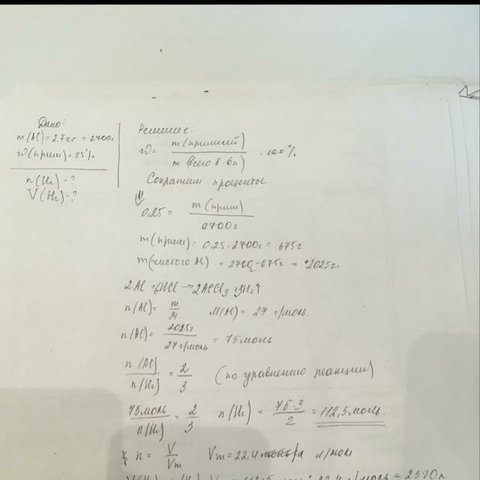 Дано:
m(Al)=2.7кг = 2700г
w(прим)=25%
n(H₂)-?
V(H₂)-?
Решение:
w = m(примесей) / m(в-ва) · 100%
Сократим проценты
0.25 = m(прим) / 2700г
m(прим) = 0.25·2700г = 675г
m(чистого Al) = 2700-675г = 2025г
2Al+6HCl→2AlCl₃+3H₂↑
n(Al)= m/M M(Al) = 27 г/моль
n(Al)= 2025г / 27 г/моль = 75моль
n(Al) / n(H₂) = 2/3 (по уравнению реакции)
75моль / n(H₂) = 2/3 n(H₂) = 75·3 / 2 = 112,5моль
n = V/Vm Vm=22,4 л/моль
= 2520л